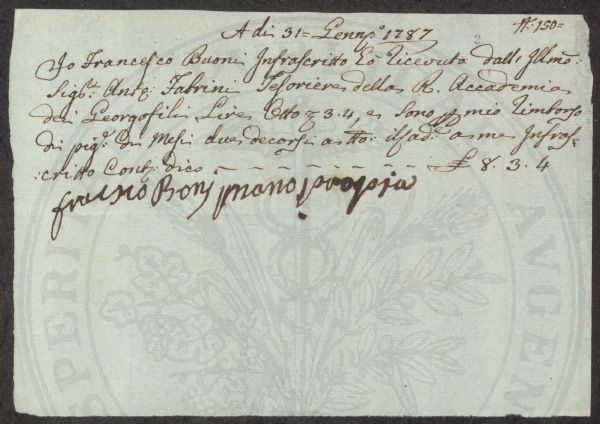 A di 31= Genn:o 1787
N: 150=
Io Francesco Buoni Infrascritto ho ricevuto dall: Illmo:
Sig:re Ant:o Fabrini Tesoriere della R. Accademia
dei Georgofili Lire Otto 3.4, e sono p mio rimborso
di pig: di Mesi due decorsi a tto: il sud: a me Infras=
:critto Cont: dico £ 8. 3. 4
Bon mano propia
PERI
AVGEN